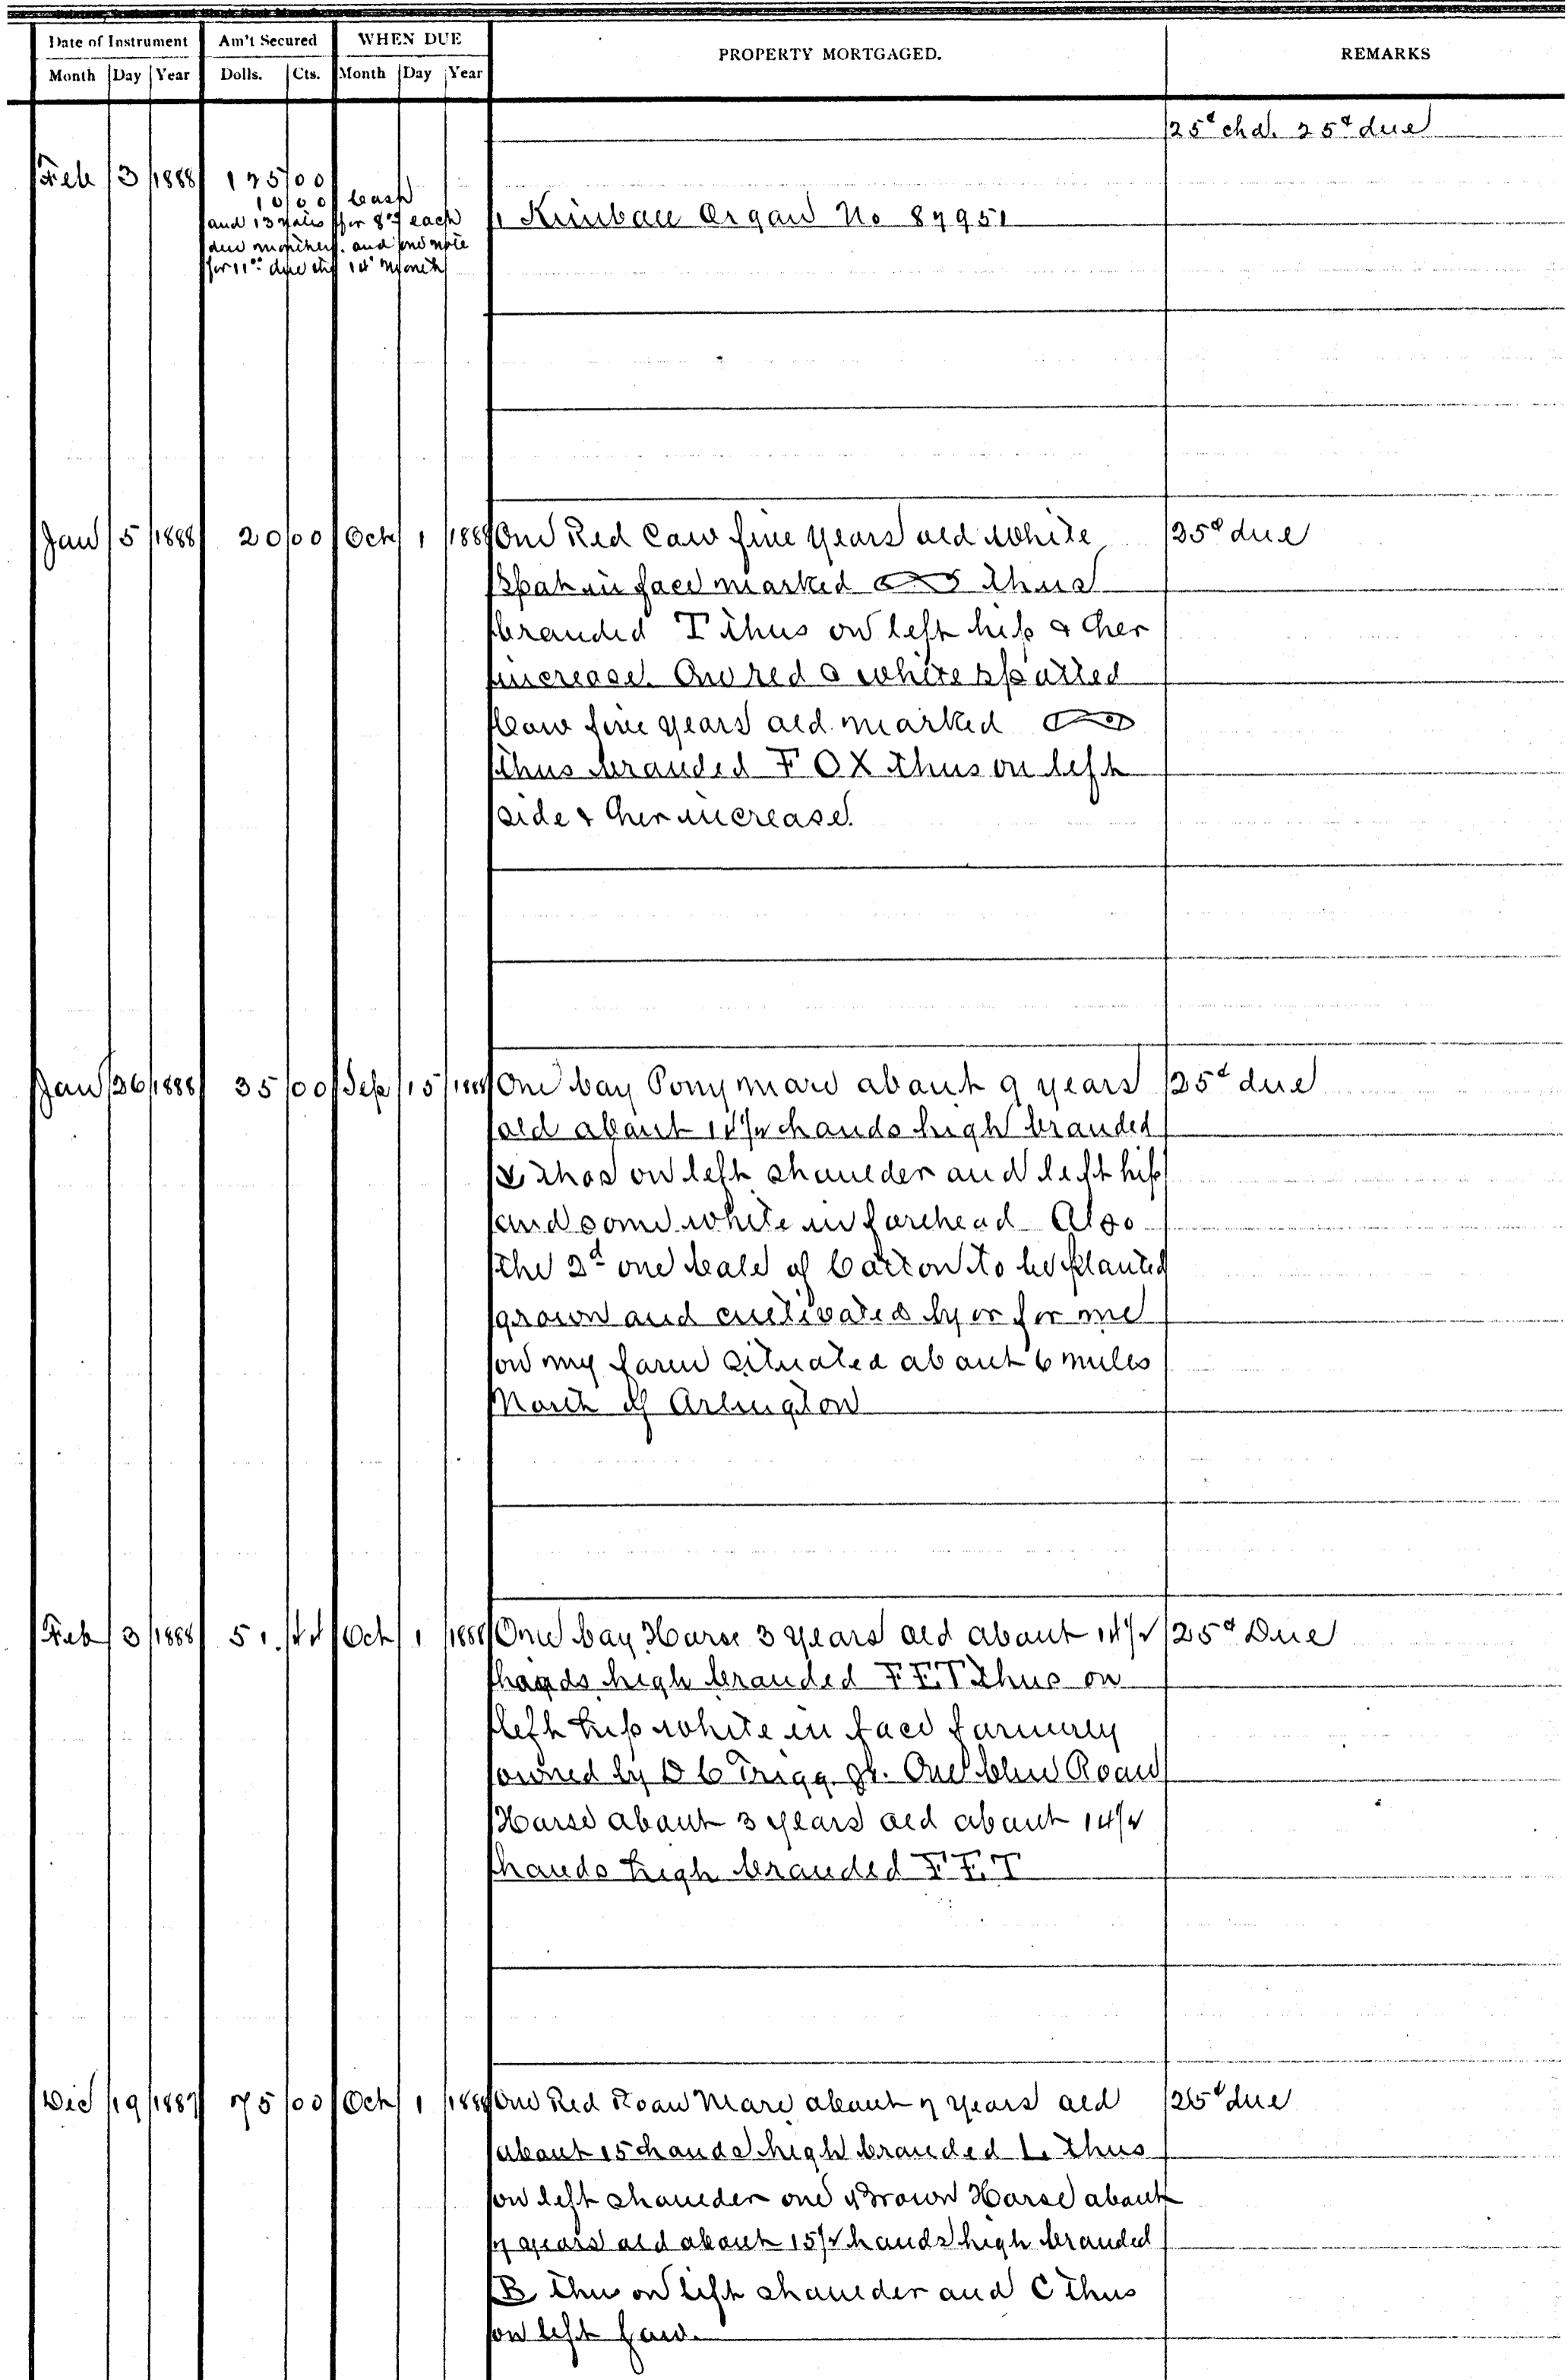 Date of Instrument Am't Secured WHEN DUE PROPERTY MORTGAGED. REMARKS
Month Day Year Dolls. Cts. Month Day Year
25¢ chd. 25¢ due
Feb 3 1888 125 00
10 00 Cash
and 13 for 8 each
1 Organ No
due monthly. and one note
for 11.00 due Month
Jan 5 1888 20 00 Oct 1 1888 One Red Cow five years old white 25¢ due
spot in face marked thus
branded T thus on left hip & her
increase. One red & white spotted
Cow five years old marked
thus branded F O X thus on left
side & her increase.
Jan 26 1888 35 00 Sep 15 1888 One bay Pony mare about 9 years 25¢ due
old about 14½ hands high branded
thus on left shoulder and left hip
and some white in forehead Also
the 2d one bale of Cotton to be planted
grown and cultivated by or for me
on my farm situated about 6 miles
North of Arlington
Feb 3 1888 51 Oct 1 1888 One bay Horse 3 years old about 14½ 25¢ Due
hands high branded F E T thus on
left hip white in face formerly
owned by D C Trigg Jr. One blue Roan
Horse about 3 years old about 14½
hands high branded F E T
Dec 19 1887 75 00 Oct 1 1888 One Red Roan Mare about 7 years old 25¢ due
about 15 hands high branded L thus
on left shoulder one Brown Horse about
7 years old about 15½ hands high branded
B thus on left shoulder and C thus
on left jaw.